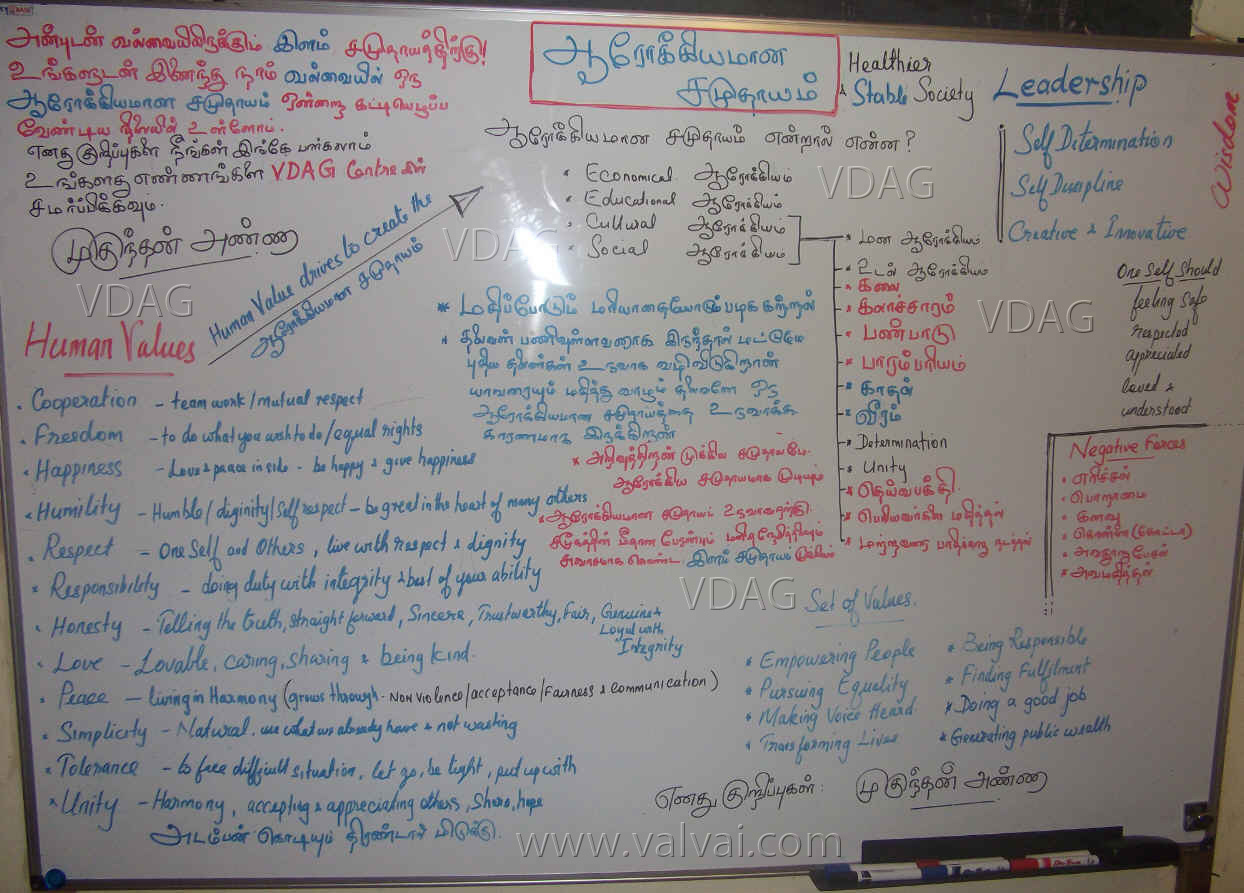 அன்புடன் வல்வையிலிருக்கும் இளம் சமுதாயத்திற்கு!
உங்களுடன் இணைந்து நாம் வல்வையில் ஒரு
ஆரோக்கியமான சமுதாயம் ஒன்றை கட்டியெழுப்ப
வேண்டிய நிலையில் உள்ளோம்.
எனது குறிப்புகள் நீங்கள் இங்கே பார்கலாம்
உங்களது எண்ணங்களை VDAG Centre இல்
சமர்ப்பிக்கவும்.
முகுந்தன் அண்ணா
ஆரோக்கியமான
சமுதாயம்
Healthier
& Stable Society
Leadership
Self Determination
Self Discipline
Creative & Innovative
Wisdom
ஆரோக்கியமான சமுதாயம் என்றால் என்ன?
* Economical ஆரோக்கியம்
* Educational ஆரோக்கியம்
* Cultural ஆரோக்கியம்
* Social ஆரோக்கியம்
* மன ஆரோக்கியம்
* உடல் ஆரோக்கியம்
* கலை
* கலாச்சாரம்
* பண்பாடு
* பாரம்பரியம்
* காதல்
* வீரம்
* Determination
* Unity
* தெய்வபக்தி
* பெரியவர்களை மதித்தல்
One Self Should
feeling safe
respected
appreciated
loved &
understood
Negative Forces
* எரிச்சல்
* பொறாமை
* களவு
* அவமதித்தல்
Human Value drives to create the
ஆரோக்கியமான சமுதாயம்
** மதிப்போடும் மரியாதையோடும் பழக கற்றல்
* தலைவன் பணிவுள்ளவனாக இருந்தால் மட்டுமே
புதிய தலைவர்கள் உருவாக வழிவிடுகிறான்
யாவரையும் மதித்து வாழும் தலைவனே ஒரு
ஆரோக்கியமான சமுதாயத்தை உருவாக்க
காரணமாக இருக்கிறான்
ஆரோக்கிய சமுதாயமாக முடியும்
* ஆரோக்கியமான சமுதாயம் உருவாவதற்கு
Human Values
* Cooperation - team work/mutual respect
* Freedom - to do what you wish to do/equal rights
* Happiness - Love & peace in side - be happy & give happiness
* Humility - Humble/deginity/Self respect - be great in the heart of many others
* Respect - One Self and Others, live with respect & dignity
* Responsibility - doing duty with integrity & best of your ability
* Honesty - Telling the truth, straight forward, Sincere, Trustworthy, Fair, Genuine &
Loyal with
Integrity
* Love - Lovable, caring, sharing & being kind.
* Peace - living in Harmony (grows through - Non violence/acceptance/Fairness & communication)
* Simplicity - Natural. use what we already have & not wasting
* Tolerance - to face difficult situation, let go, be light, put up with
* Unity - Harmony, accepting & appreciating others, share, hope
அடம்பன் கொடியும் திரண்டால் மிடுக்கு.
Set of Values.
* Empowering People
* Pursuing Equality
* Making Voice Heard
* Transforming Lives
* Being Responsible
* Finding Fulfilment
* Doing a good job
* Generating public wealth
எனது குறிப்புகள்: முகுந்தன் அண்ணா
VDAG
VDAG
VDAG
VDAG
VDAG
www.valvai.com